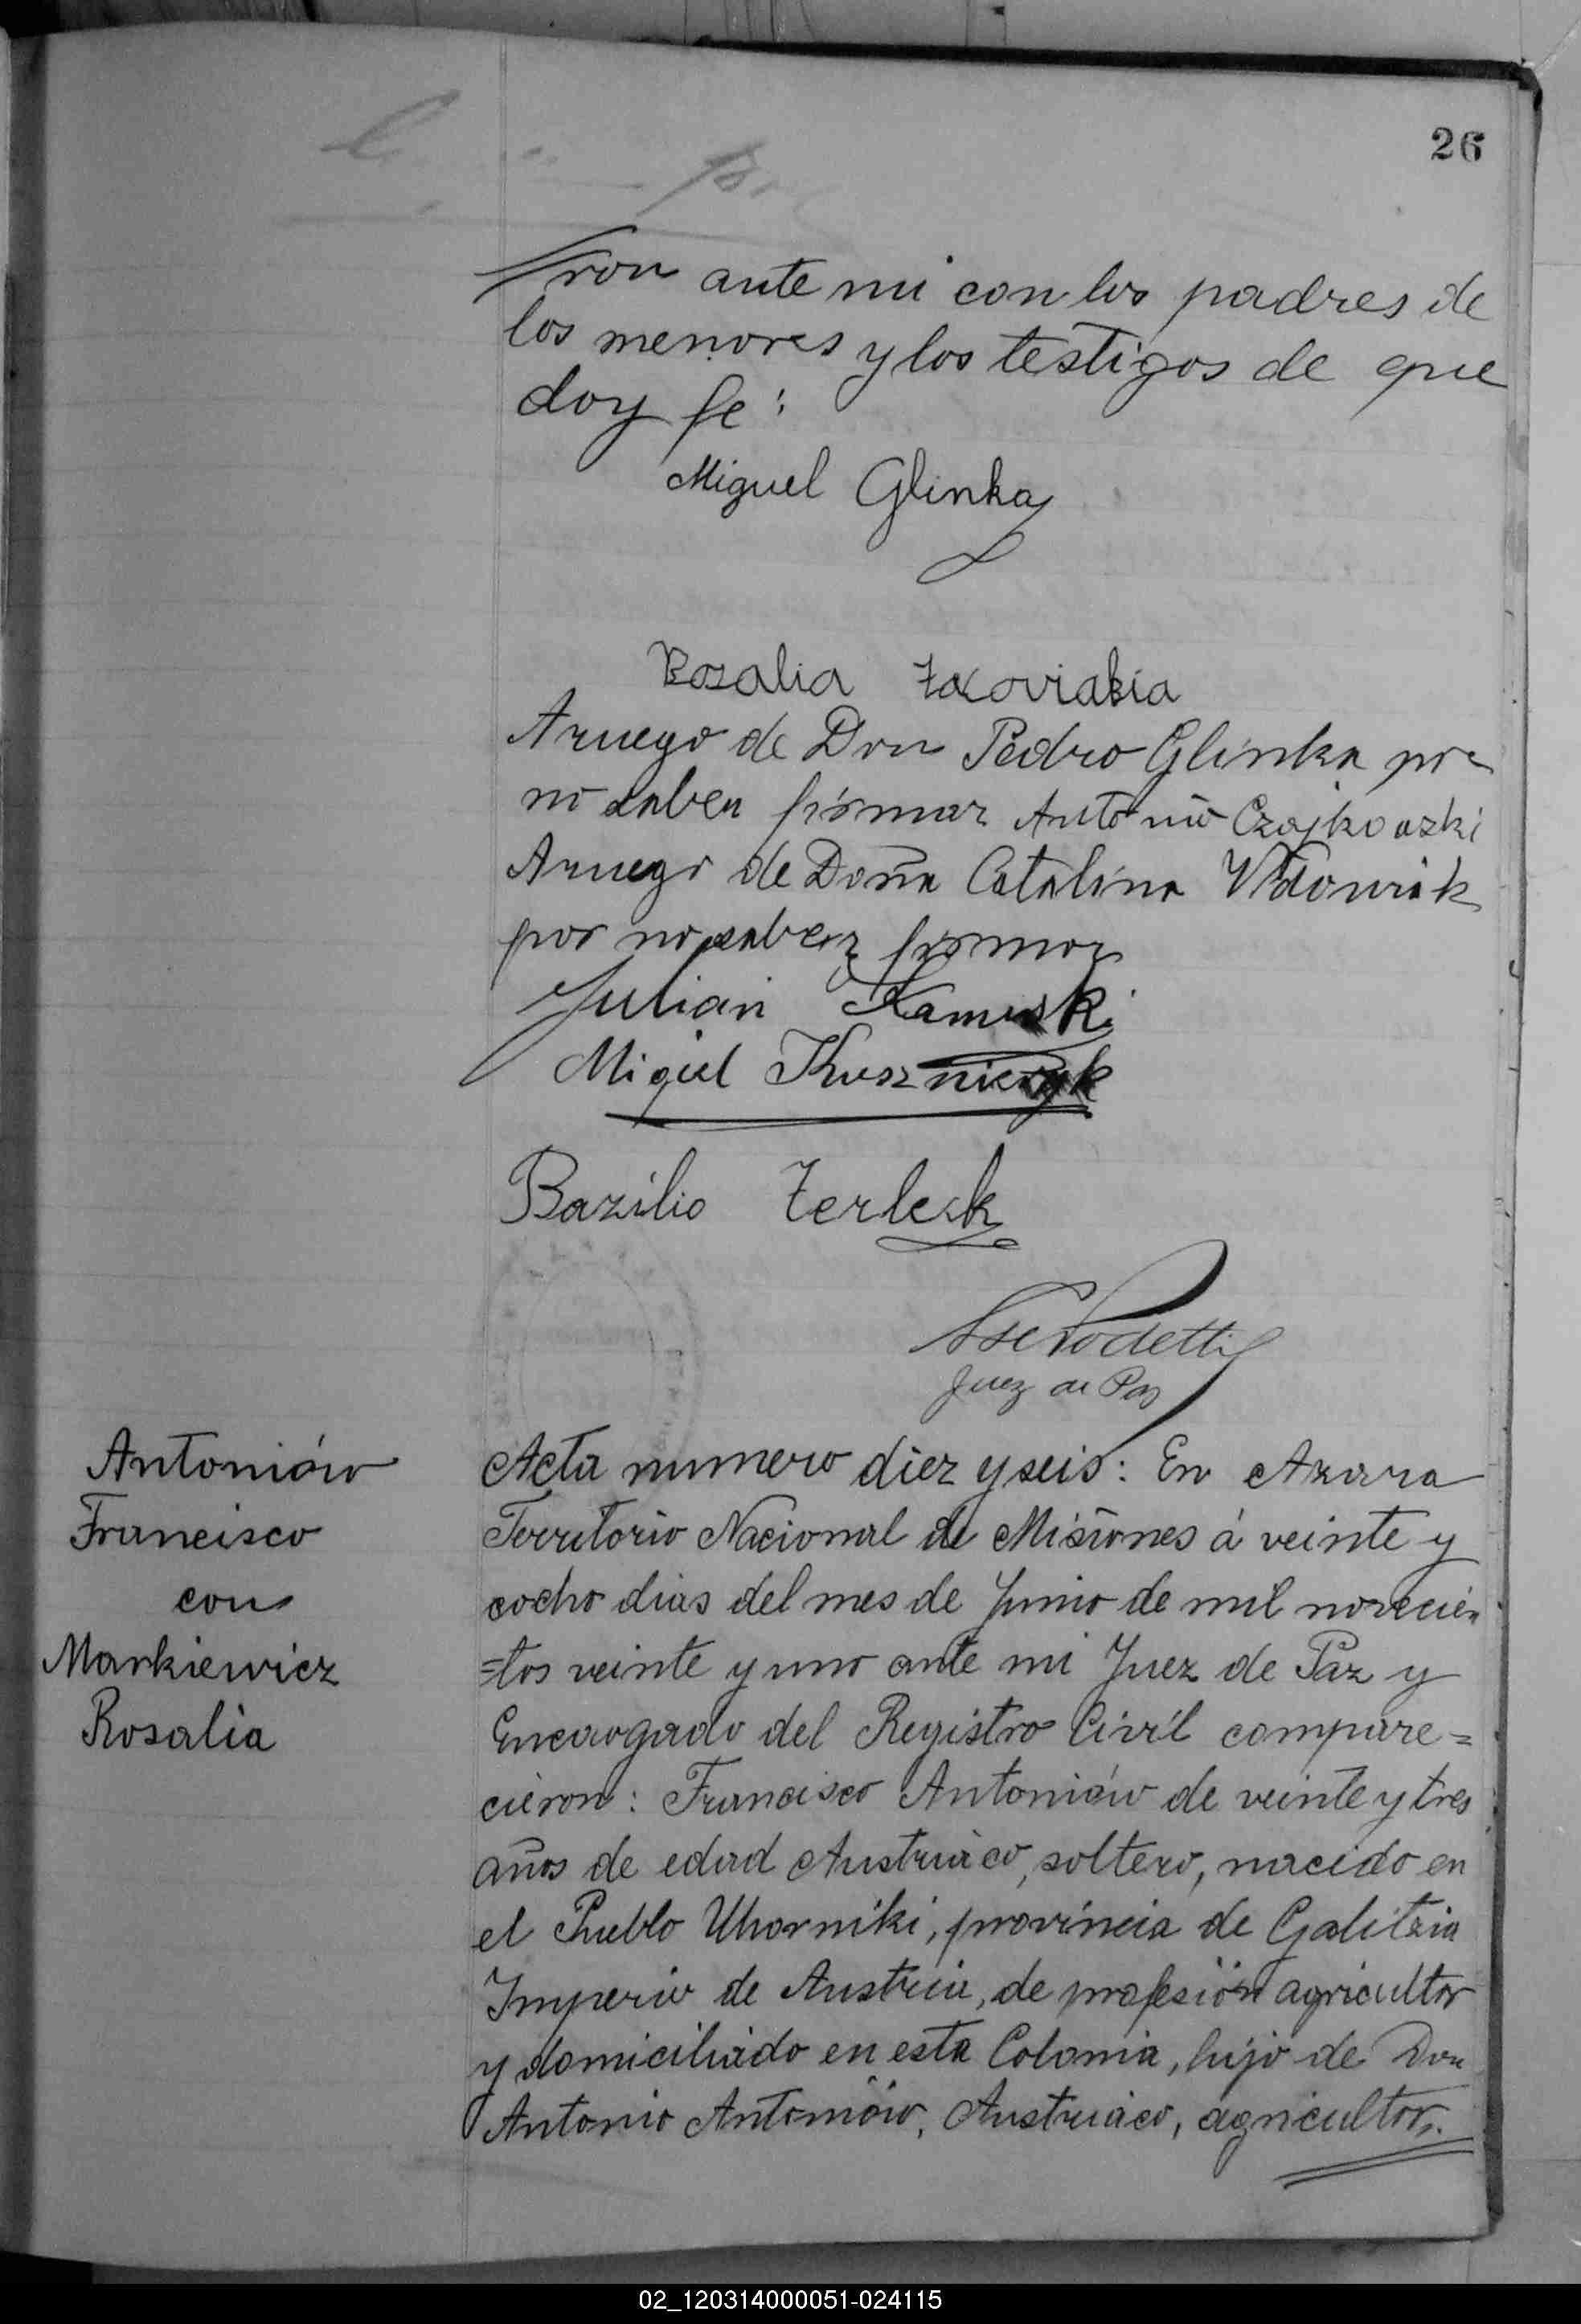 26
ron ante mi con los padres de
los menores y los testigos de que
doy fe:
Miguel Glinka
Rosalia
Aruego de Don Pedro Glinka por
no saber firmar Antonio Czajkowski
Aruego de Doña Catalina Wdowiak
por no saber firmar
Julian Kamuski
Miguel
Bazilio Terlesk
Juez de Paz
Antoniów
Francisco
con
Markiewicz
Rosalia
Acta numero diez y seis: En Azara
Territorio Nacional de Misiones á veinte y
ocho dias del mes de Junio de mil novecien
=tos veinte y uno ante mi Juez de Paz y
Encargado del Registro Civil compare=
cieron: Francisco Antoniów de veinte y tres
años de edad Austriáco, soltero, nacido en
el Pueblo Uhorniki, provincia de Galitzia
Imperio de Austria, de profesión agricultor
y domiciliádo en esta Colonia, hijo de Don
Antonio Antoniów, Austriáco, agricultor.
02_120314000051-024115